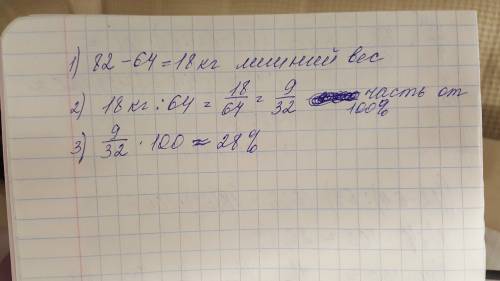 1) 82 - 64 = 18 кг лишний вес
2) 18 кг : 64 = 18/64 = 9/32 часть от 100%
3) 9/32 · 100 ≈ 28%